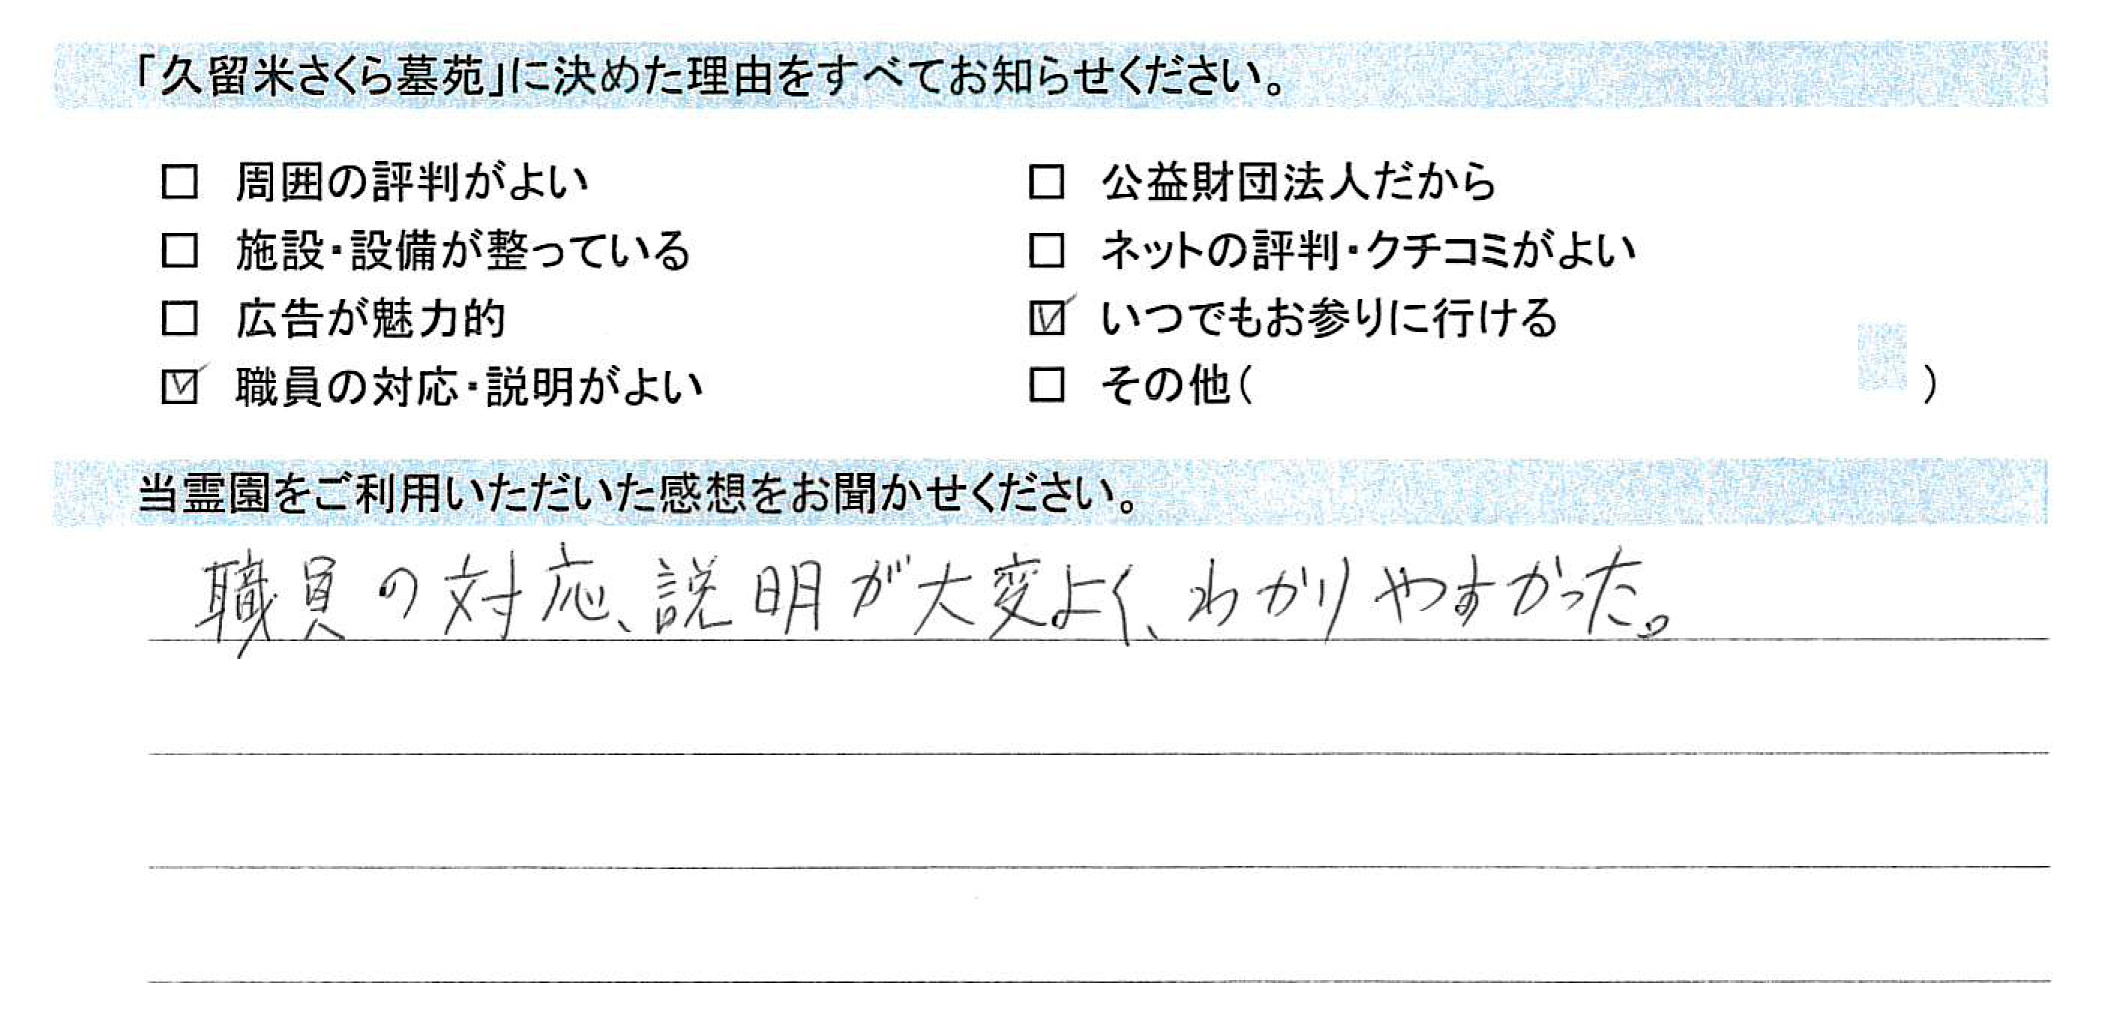 「久留米さくら墓苑」に決めた理由をすべてお知らせください。
□ 周囲の評判がよい
□ 施設・設備が整っている
□ 広告が魅力的
☑ 職員の対応・説明がよい
□ 公益財団法人だから
□ ネットの評判・クチコミがよい
☑ いつでもお参りに行ける
□ その他( )
当霊園をご利用いただいた感想をお聞かせください。
職員の対応、説明が大変よく、わかりやすかった。